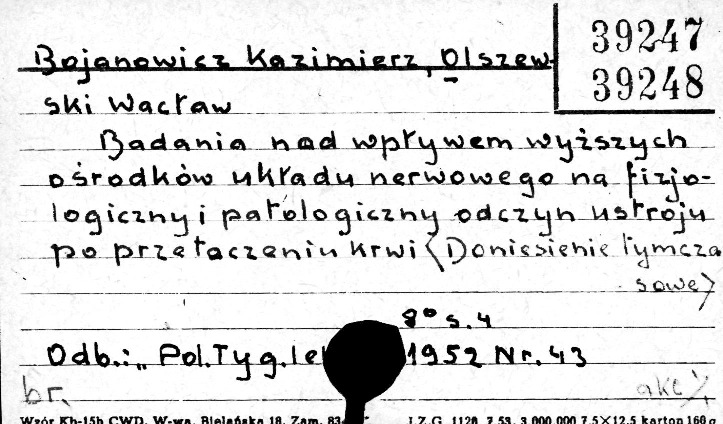 39247
39248
Bojanowicz Kazimierz, Olszew-
ski Wacław
Badania nad wpływem wyższych
ośrodków układu nerwowego na fizjo-
logiczny i patologiczny odczyn ustroju
po przetaczaniu krwi <Doniesienie tymcza
sowe>
8° s. 4
Odb.: „Pol. Tyg. le 1952 Nr. 43
br. akc
Wzór Kh-15b CWD, W-wa, Bielańska 18. Zam. 83 J.Z.G. 1126 7 53. 3.000.000 7.5×12.5 karton 160 g